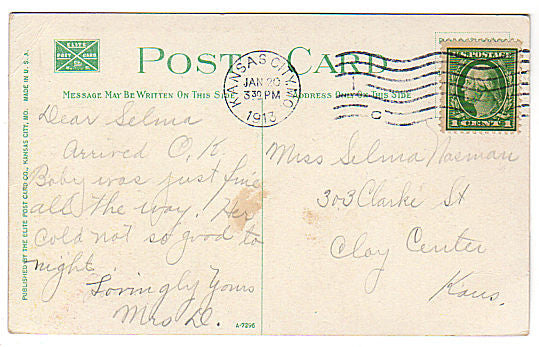 ELITE
POST CARD
CO.
POST CARD
MESSAGE MAY BE WRITTEN ON THIS SIDE
ADDRESS ONLY ON THIS SIDE
KANSAS CITY, MO.
JAN 20
3 30 PM
1913
C
U.S. POSTAGE
1 CENT 1
PUBLISHED BY THE ELITE POST CARD CO., KANSAS CITY, MO. MADE IN U.S.A.
Dear Selma
Arrived O.K.
Baby was just fine
all the way. Her
cold not so good to
night.
Lovingly Yours
Mrs D.
A-7296
Miss Selma Nasman
303 Clarke St
Clay Center
Kans.